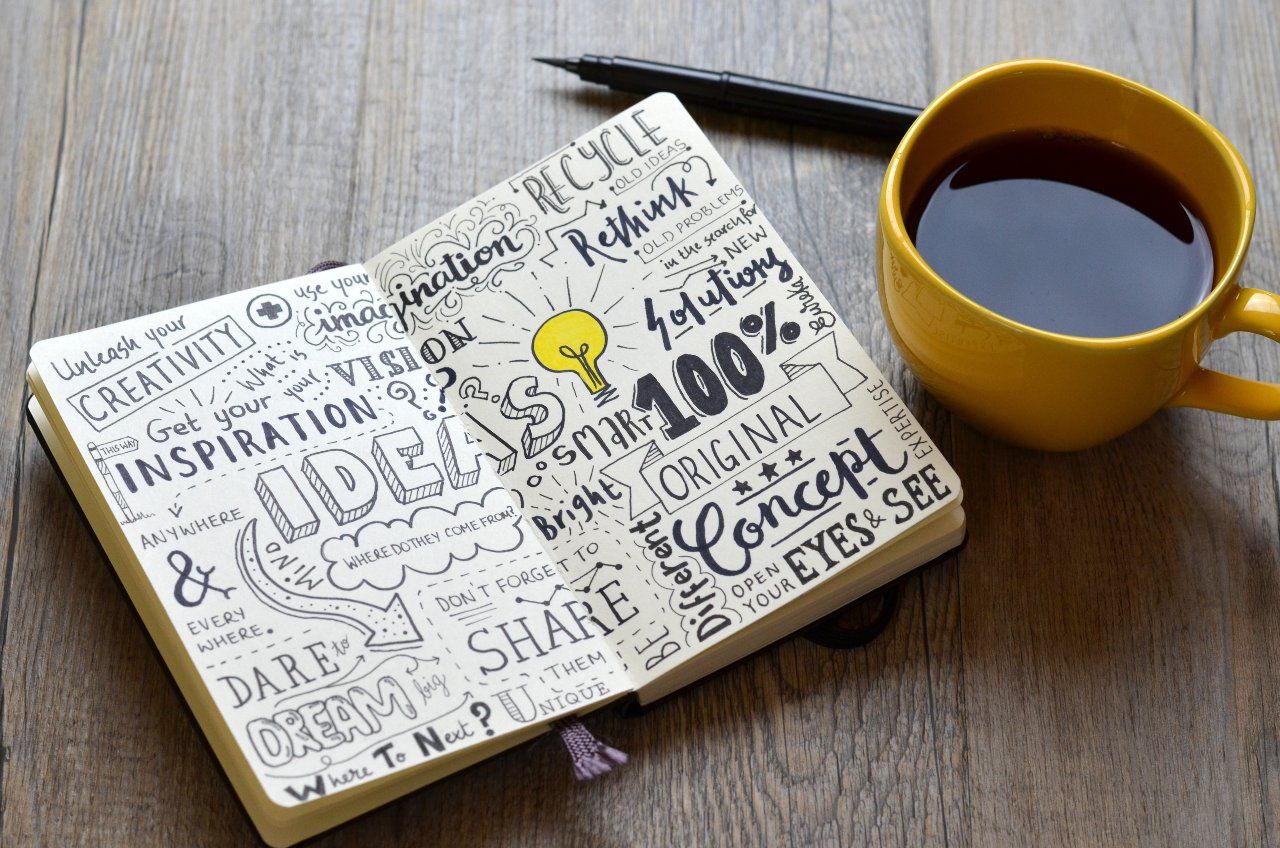 Unleash your
CREATIVITY
use your
imagination
What is
your VISION
??
Get your
INSPIRATION
THIS WAY
ANYWHERE
&
EVERY
WHERE.
IDEAS
MIND
WHERE DO THEY COME FROM?
DON'T FORGET TO
SHARE
THEM
DARE to
DREAM big
UNIQUE
Where To Next?
RECYCLE
OLD IDEAS
Rethink
OLD PROBLEMS
in the search for
NEW
Solutions
Eureka
SMART
100%
Bright
ORIGINAL
Concept
EXPERTISE
BE Different
OPEN
YOUR EYES & SEE